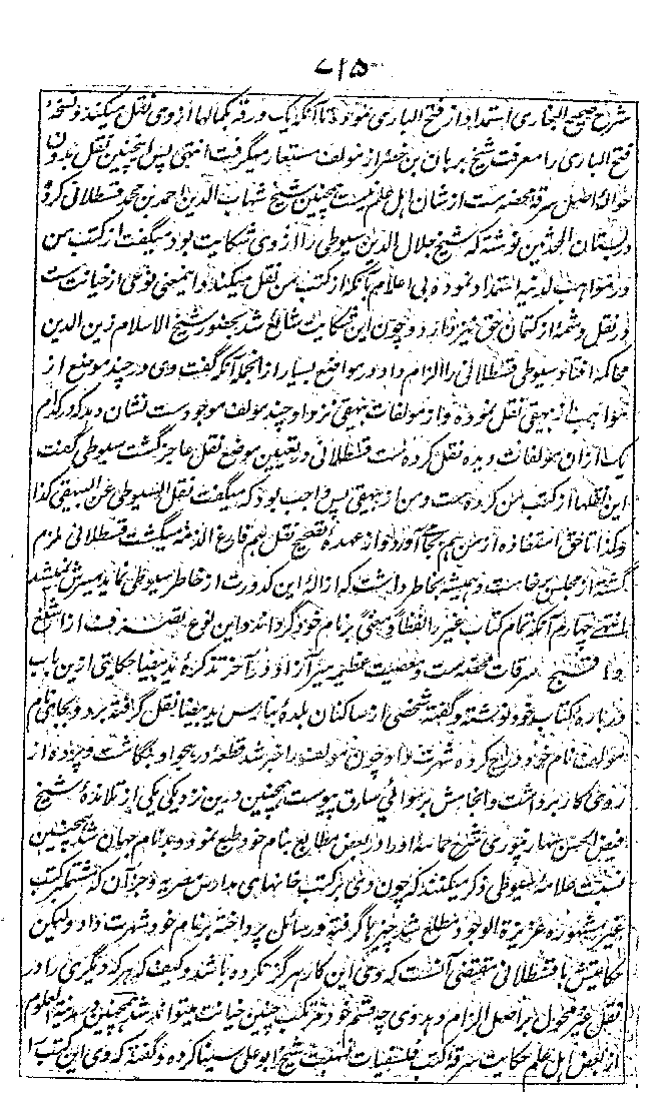 ۷۱۵
شرح صحیح البخاری استمداد از فتح الباری نمود تا آنکه یک ورقه بکمالها از وی نقل میکند و نسخهٔ
فتح الباری را معرفت شیخ برهان بن خضر از مولف مستعار میگرفت انتهی پس اینچنین نقل بدون
حوالهٔ اصل سرقهٔ محضه ست از شان اهل علم نیست همچنین شیخ شهاب الدین احمد بن محمد قسطلانی کرد
در بستان المحدثین نوشته که شیخ جلال الدین سیوطی را از وی شکایت بود میگفت از کتب من
در مواهب لدنیه استمداد نموده بی اعلام بآنکه از کتب من نقل میکند و اینمعنی نوعی از خیانت ست
در نقل و شمهٔ از کتمان حق نیز دارد و چون این شکایت شائع شد بحضور شیخ الاسلام زین الدین
محاکمه افتاد سیوطی قسطلانی را الزام داد در مواضع بسیار از انجمله آنکه گفت وی در چند موضع از
مواهب از بیهقی نقل نموده و از مولفات بیهقی نزد او چند مولف موجود ست نشان دهد که در کدام
یک از آن مولفات دیده نقل کرده ست قسطلانی در تعیین موضع نقل عاجز گشت سیوطی گفت
این نقلها از کتب من کرده ست و من از بیهقی پس واجب بود که میگفت نقل السیوطی عن البیهقی کذا
وکذا تا حق استفاده از من هم بجا می‌آورد و از عهدهٔ تصحیح نقل هم فارغ الذمه میگشت قسطلانی ملزم
گشته از مجلس برخاست و همیشه بخاطر داشت که ازالهٔ این کدورت از خاطر سیوطی نماید میسرش نمیشد
انتهی چهارم آنکه تمام کتاب غیر را لفظاً و معنیً بر نام خود گرداند و این نوع تصرف از اشنع
و اقبح سرقات محضه ست و معصیت عظیمه میر آزاد در آخر تذکرهٔ ید بیضا حکایتی ازین باب
در بارهٔ کتاب خود نوشته و گفته شخصی از ساکنان بلدهٔ بنارس ید بیضا نقل گرفته برد و بجای نام
مولف نام خود درج کرده شهرت داد چون مولف را خبر شد قطعهٔ در هجو او بنگاشت و پرده از
روی کار برداشت و انجامش برسوائی سارق پیوست همچنین درین نزدیکی یکی از تلامذهٔ شیخ
فیض الحسن سهارنپوری شرح حماسهٔ او را در بعض مطابع بنام خود طبع نمود و بدنام جهان شد همچنین
نسبت علامهٔ سیوطی ذکر میکنند که چون وی بر کتب خانهای مدارس مصریه و جز آن که مشتمل بر کتب
غیر مشهوره عزیزة الوجود مطلع شد چیزها گرفته و رسائل پرداخته بر نام خود شهرت داد ولیکن
حکایتش با قسطلانی مقتضی آنست که وی این کار هرگز نکرده باشد و کیف که هر که دیگری را در
نقل غیر محول بر اصل الزام دهد وی چه قسم خود مرتکب چنین خیانت میتواند شد همچنین در مدینة العلوم
از بعض اهل علم حکایت سرقهٔ کتب فلسفیات نسبت شیخ ابو علی سینا کرده و گفته که وی این کتب را